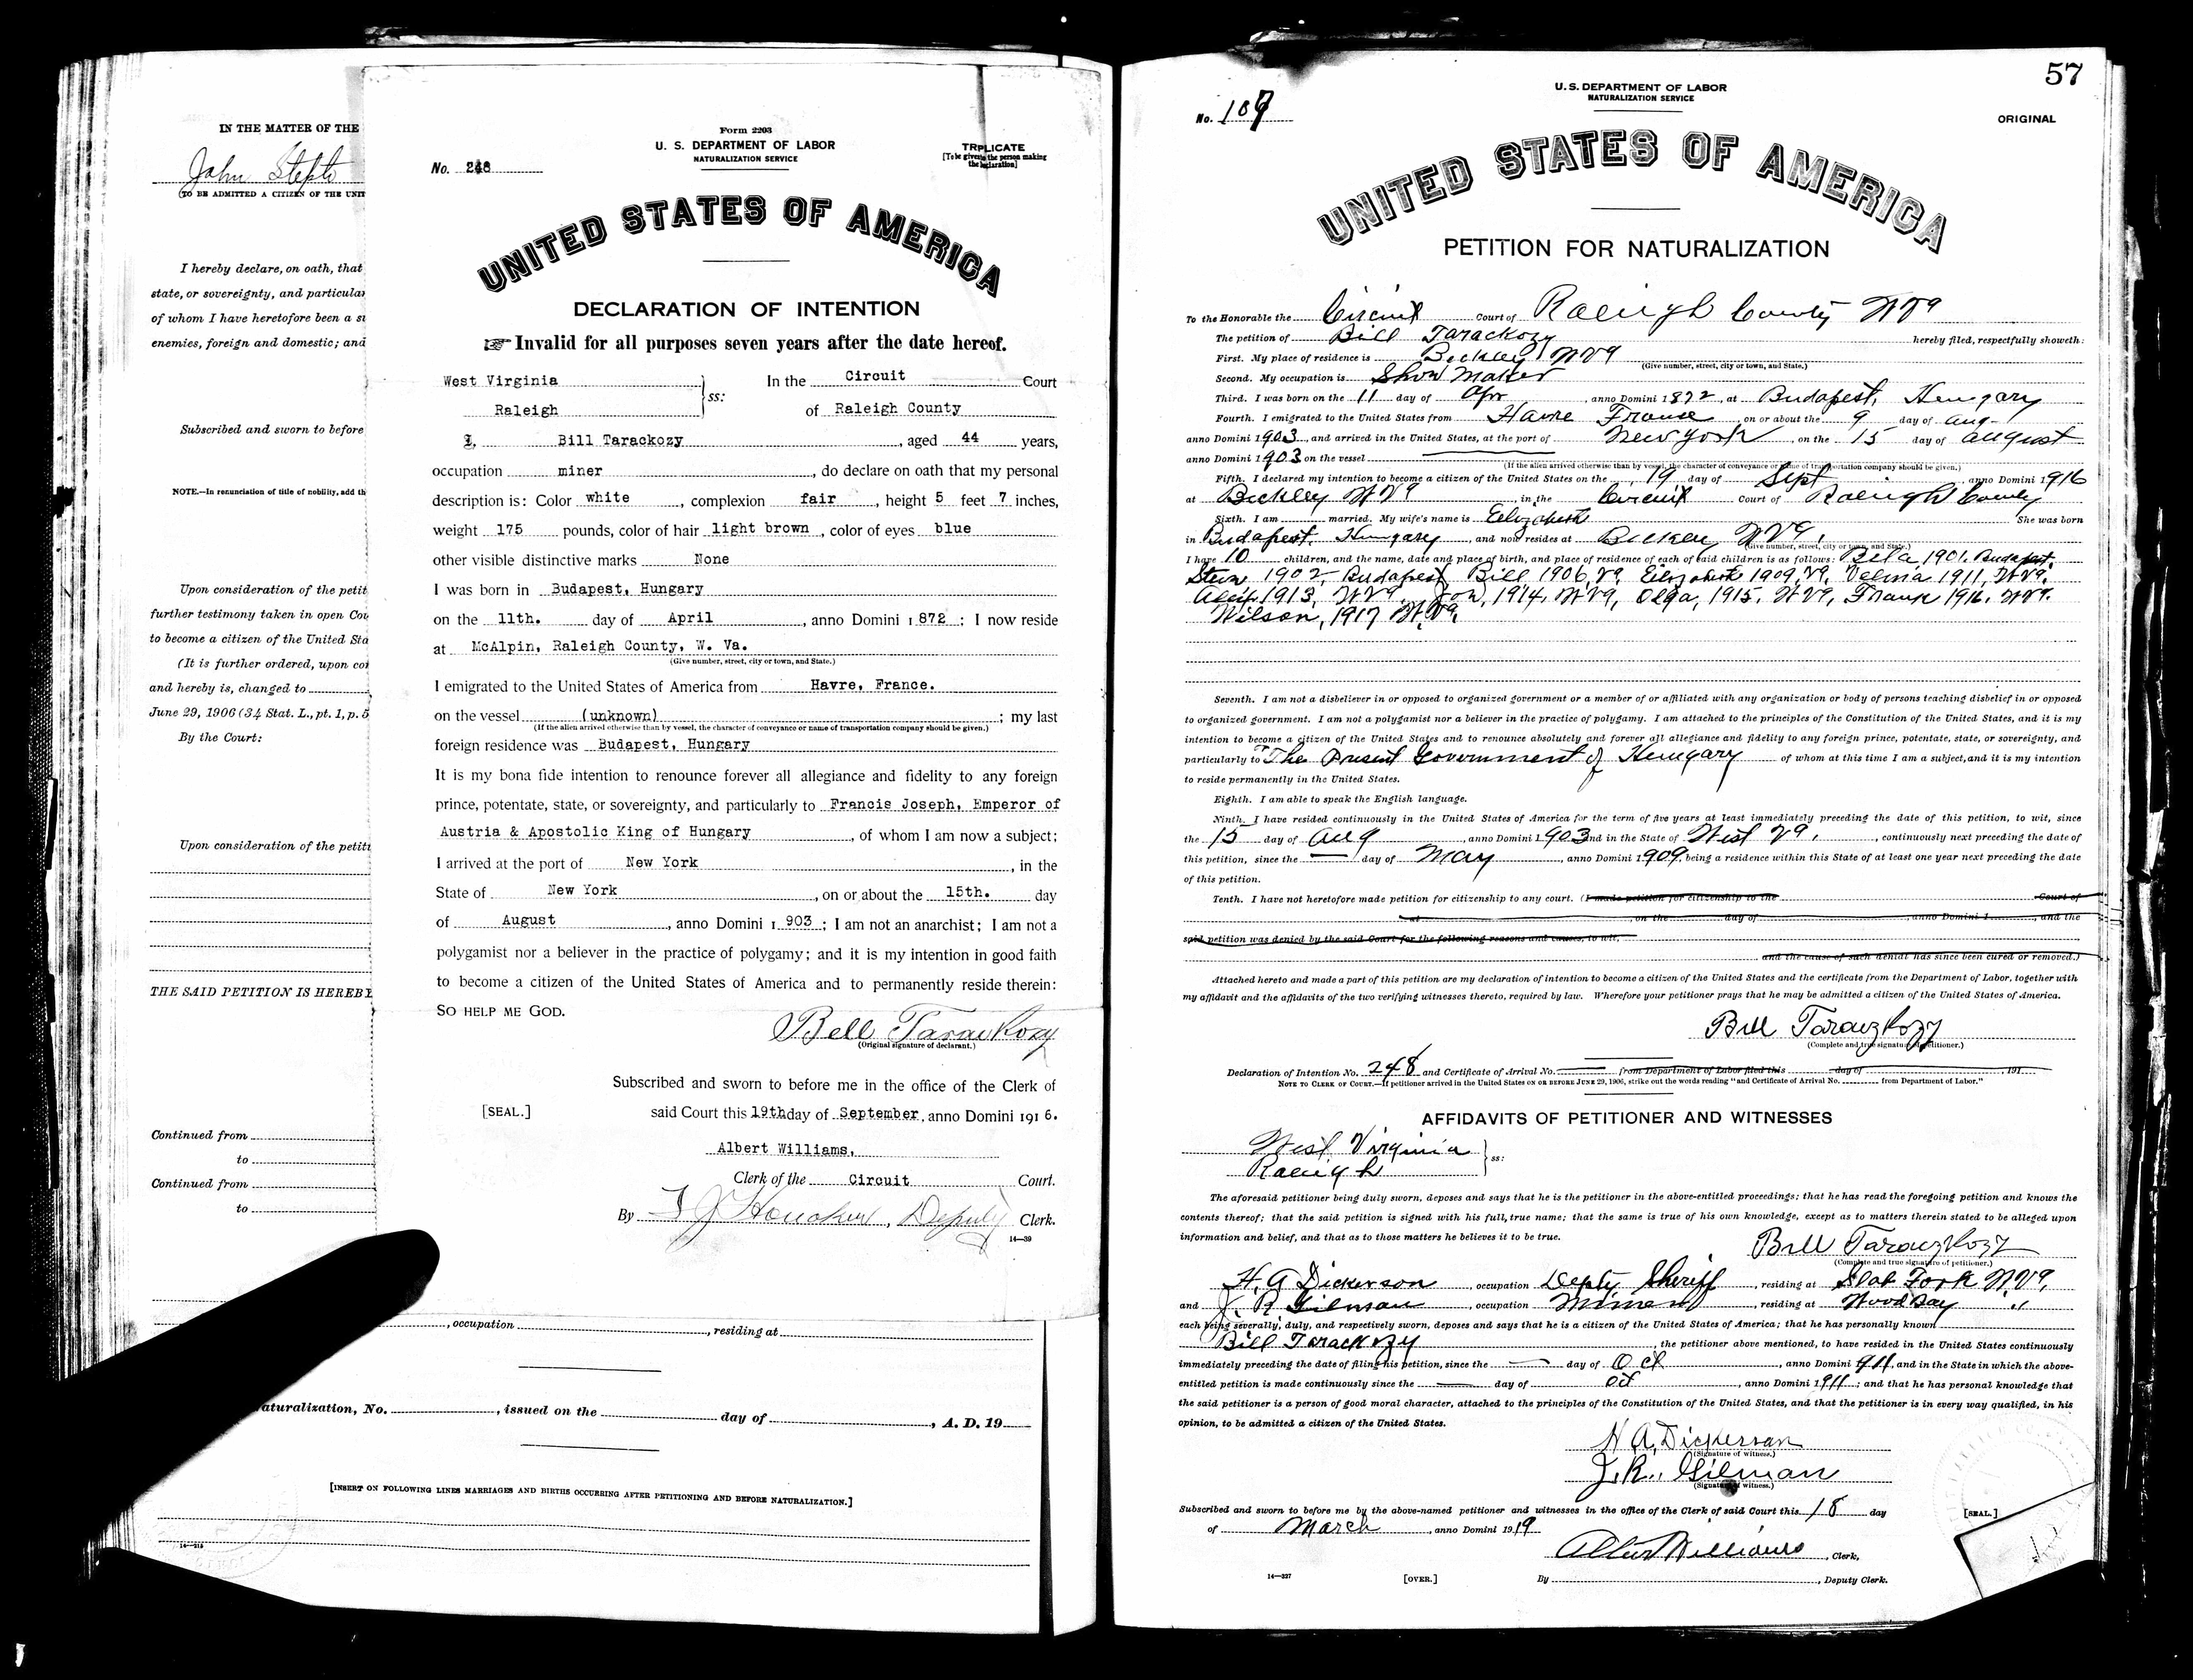 IN THE MATTER OF THE
John Stepto
(TO BE ADMITTED A CITIZEN OF THE UNIT
I hereby declare, on oath, that
state, or sovereignty, and particular
of whom I have heretofore been a su
enemies, foreign and domestic; and
Subscribed and sworn to before
NOTE.—In renunciation of title of nobility, add th
Upon consideration of the petit
further testimony taken in open Cou
to become a citizen of the United Sta
(It is further ordered, upon con
and hereby is, changed to
June 29, 1906 (34 Stat. L., pt. 1, p. 5
By the Court:
Upon consideration of the petiti
THE SAID PETITION IS HEREBY
Continued from
to
Continued from
to
, occupation , residing at
aturalization, No. , issued on the day of , A. D. 19
[INSERT ON FOLLOWING LINES MARRIAGES AND BIRTHS OCCURRING AFTER PETITIONING AND BEFORE NATURALIZATION.]
Form 2203
U. S. DEPARTMENT OF LABOR
NATURALIZATION SERVICE
No. 248
TRPLICATE
[To be given to the person making the declaration]
UNITED STATES OF AMERICA
DECLARATION OF INTENTION
☞ Invalid for all purposes seven years after the date hereof.
West Virginia } ss: In the Circuit Court
Raleigh of Raleigh County
I, Bill Tarackozy, aged 44 years,
occupation miner, do declare on oath that my personal
description is: Color white, complexion fair, height 5 feet 7 inches,
weight 175 pounds, color of hair light brown, color of eyes blue
other visible distinctive marks None
I was born in Budapest, Hungary
on the 11th. day of April, anno Domini 1 872 ; I now reside
at McAlpin, Raleigh County, W. Va.
(Give number, street, city or town, and State.)
I emigrated to the United States of America from Havre, France.
on the vessel (unknown) ; my last
(If the alien arrived otherwise than by vessel, the character of conveyance or name of transportation company should be given.)
foreign residence was Budapest, Hungary
It is my bona fide intention to renounce forever all allegiance and fidelity to any foreign
prince, potentate, state, or sovereignty, and particularly to Francis Joseph, Emperor of
Austria & Apostolic King of Hungary, of whom I am now a subject;
I arrived at the port of New York, in the
State of New York, on or about the 15th. day
of August, anno Domini 1 903 ; I am not an anarchist; I am not a
polygamist nor a believer in the practice of polygamy; and it is my intention in good faith
to become a citizen of the United States of America and to permanently reside therein:
SO HELP ME GOD.
Bell Tarackozy
(Original signature of declarant.)
Subscribed and sworn to before me in the office of the Clerk of
[SEAL.] said Court this 19th day of September, anno Domini 191 6.
Albert Williams,
Clerk of the Circuit Court.
By Deputy Clerk.
14—39
57
U. S. DEPARTMENT OF LABOR
NATURALIZATION SERVICE
No. 109
ORIGINAL
UNITED STATES OF AMERICA
PETITION FOR NATURALIZATION
To the Honorable the Circuit Court of Raleigh County W Va
The petition of Bill Tarackozy hereby filed, respectfully showeth:
First. My place of residence is Beckley W Va
(Give number, street, city or town, and State.)
Second. My occupation is Shoe Maker
Third. I was born on the 11 day of Apr, anno Domini 1872, at Budapest, Hungary
Fourth. I emigrated to the United States from Havre France, on or about the 9 day of Aug
anno Domini 1903, and arrived in the United States, at the port of New York, on the 15 day of August
anno Domini 1903 on the vessel
(If the alien arrived otherwise than by vessel, the character of conveyance or name of transportation company should be given.)
Fifth. I declared my intention to become a citizen of the United States on the 19 day of Sept, anno Domini 1916
at Beckley W Va, in the Circuit Court of Raleigh County
Sixth. I am married. My wife's name is Elizabeth She was born
in Budapest, Hungary, and now resides at Beckley W Va.
(Give number, street, city or town, and State.)
I have 10 children, and the name, date and place of birth, and place of residence of each of said children is as follows: Bela, 1901. Budapest.
Steve 1902, Budapest Bill 1906, Va, Elizabeth 1909, Va, Velma 1911, W Va.
1913, W Va, 1914, W Va, Olga, 1915, W Va, Frank 1916. W Va.
Wilson, 1917 W. Va.
Seventh. I am not a disbeliever in or opposed to organized government or a member of or affiliated with any organization or body of persons teaching disbelief in or opposed
to organized government. I am not a polygamist nor a believer in the practice of polygamy. I am attached to the principles of the Constitution of the United States, and it is my
intention to become a citizen of the United States and to renounce absolutely and forever all allegiance and fidelity to any foreign prince, potentate, state, or sovereignty, and
particularly to The Present Government of Hungary of whom at this time I am a subject, and it is my intention
to reside permanently in the United States.
Eighth. I am able to speak the English language.
Ninth. I have resided continuously in the United States of America for the term of five years at least immediately preceding the date of this petition, to wit, since
the 15 day of Aug, anno Domini 1903 nd in the State of West Va., continuously next preceding the date of
this petition, since the — day of May, anno Domini 1909, being a residence within this State of at least one year next preceding the date
of this petition.
Tenth. I have not heretofore made petition for citizenship to any court. (I made petition for citizenship to the Court of
at , on the day of , anno Domini 1 , and the
said petition was denied by the said Court for the following reasons and causes, to wit,
and the cause of such denial has since been cured or removed.)
Attached hereto and made a part of this petition are my declaration of intention to become a citizen of the United States and the certificate from the Department of Labor, together with
my affidavit and the affidavits of the two verifying witnesses thereto, required by law. Wherefore your petitioner prays that he may be admitted a citizen of the United States of America.
Bill Taraczkozy
(Complete and true signature of petitioner.)
Declaration of Intention No. 248 and Certificate of Arrival No. from Department of Labor filed this day of , 191
NOTE TO CLERK OF COURT.—If petitioner arrived in the United States ON OR BEFORE JUNE 29, 1906, strike out the words reading "and Certificate of Arrival No. from Department of Labor."
AFFIDAVITS OF PETITIONER AND WITNESSES
West Virginia } ss:
Raleigh
The aforesaid petitioner being duly sworn, deposes and says that he is the petitioner in the above-entitled proceedings; that he has read the foregoing petition and knows the
contents thereof; that the said petition is signed with his full, true name; that the same is true of his own knowledge, except as to matters therein stated to be alleged upon
information and belief, and that as to those matters he believes it to be true.
Bill Taraczkozy
(Complete and true signature of petitioner.)
H. A Dickerson, occupation Depty Sheriff, residing at Slab Fork W Va,
and J. R Gilman, occupation Miner, residing at Wood Bay "
each being severally, duly, and respectively sworn, deposes and says that he is a citizen of the United States of America; that he has personally known
Bill Tarackozy, the petitioner above mentioned, to have resided in the United States continuously
immediately preceding the date of filing his petition, since the — day of Oct, anno Domini 1911, and in the State in which the above-
entitled petition is made continuously since the — day of Oct, anno Domini 1911; and that he has personal knowledge that
the said petitioner is a person of good moral character, attached to the principles of the Constitution of the United States, and that the petitioner is in every way qualified, in his
opinion, to be admitted a citizen of the United States.
H A, Dickerson
(Signature of witness.)
J. R.. Gilman
(Signature of witness.)
Subscribed and sworn to before me by the above-named petitioner and witnesses in the office of the Clerk of said Court this 18 day
of March, anno Domini 1919 [SEAL.]
Albert Williams, Clerk.
14—327 [OVER.] By , Deputy Clerk.